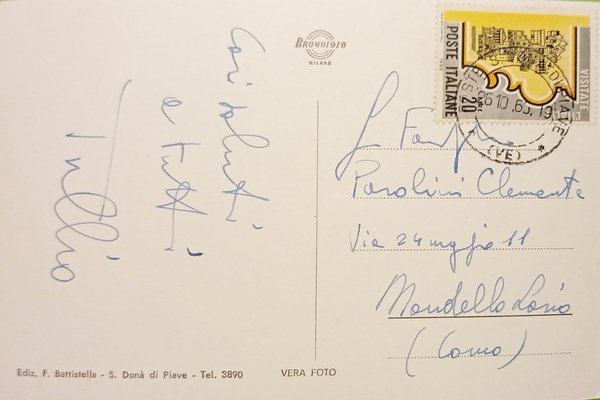 Cari saluti
a tutti
Tullio
BROMOFOTO
MILANO
POSTE ITALIANE
20
VISITATE
DI PIAVE
10.65.19
(VE)
Parolini Clemente
Via 24 maggio 11
Mandello Lario
(Como)
Ediz. F. Battistella - S. Donà di Piave - Tel. 2890
VERA FOTO